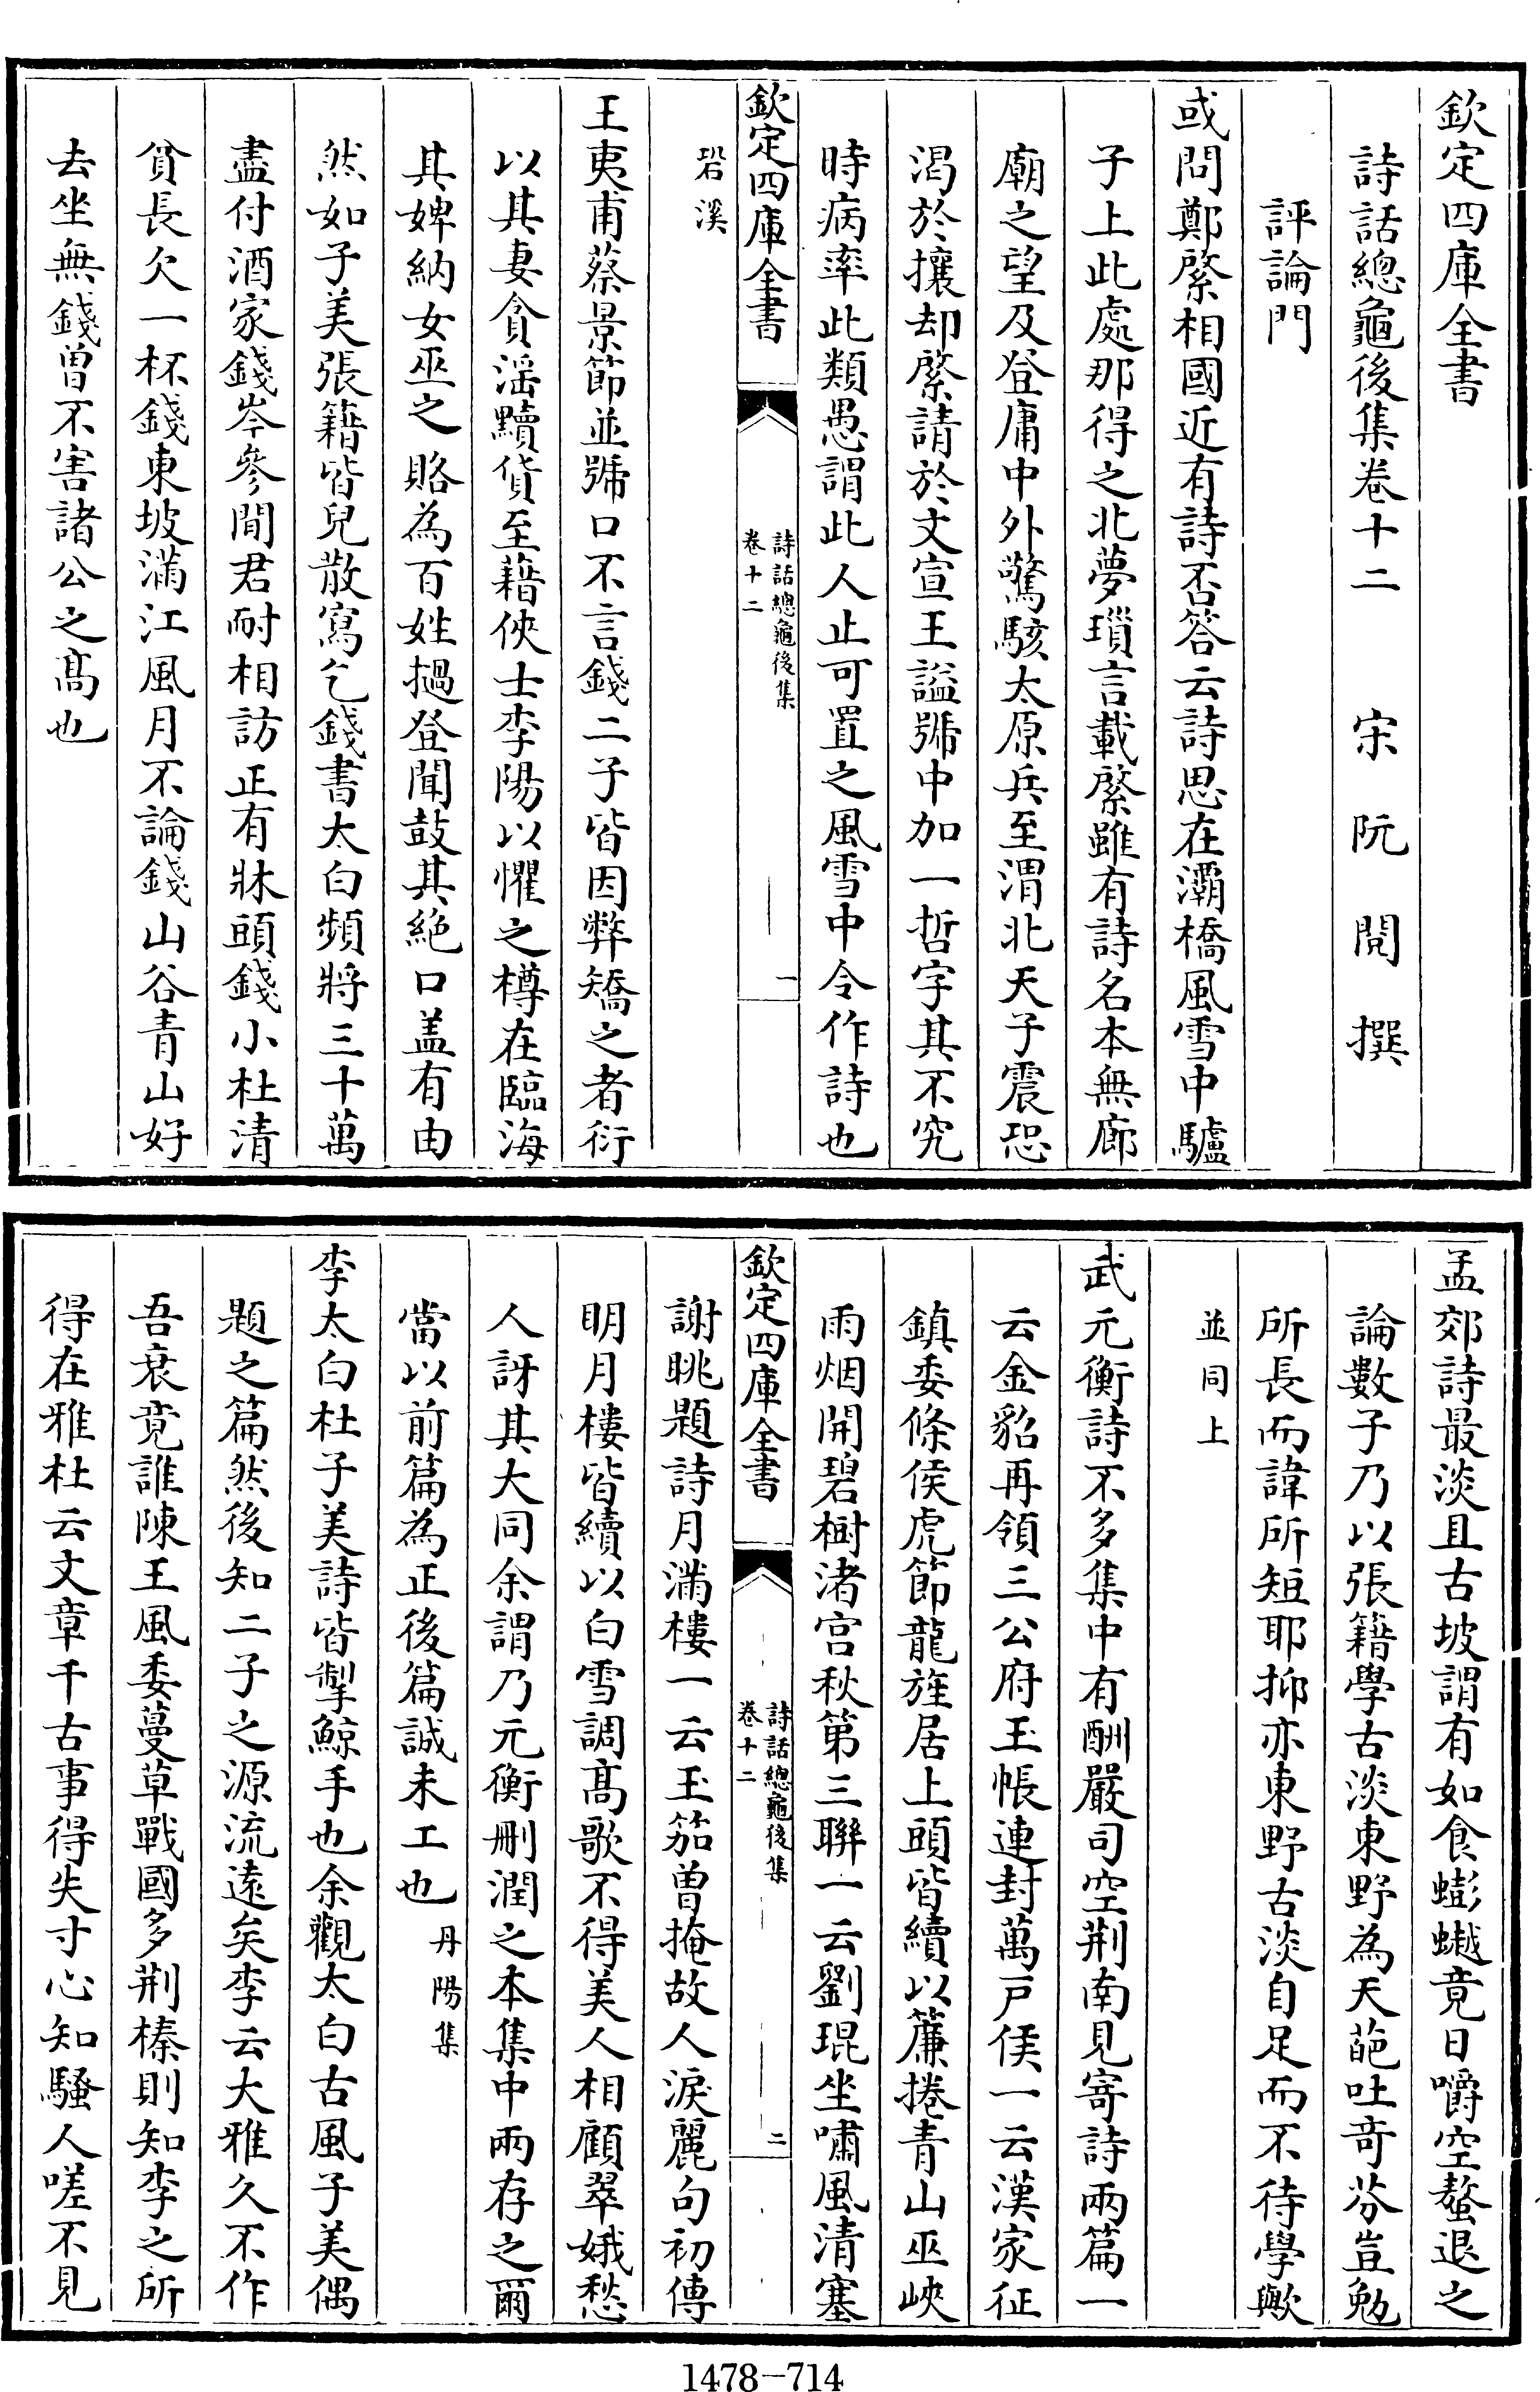 欽定四庫全書
詩話總龜後集卷十二　宋　阮　閱　撰
評論門
或問鄭綮相國近有詩否答云詩思在灞橋風雪中驢
子上此處那得之北夢瑣言載綮雖有詩名本無廊
廟之望及登庸中外驚駭太原兵至渭北天子震恐
渴於攘却綮請於文宣王諡號中加一哲字其不究
時病率此類愚謂此人止可置之風雪中令作詩也
欽定四庫全書
詩話總龜後集
卷十二
一
䂬溪
王夷甫蔡景節並號口不言錢二子皆因弊矯之者衍
以其妻貪淫黷貨至藉俠士李陽以懼之樽在臨海
其婢納女巫之賂為百姓撾登聞鼓其絶口盖有由
然如子美張籍皆兒散寫乞錢書太白頻將三十萬
盡付酒家錢岑參閒君耐相訪正有牀頭錢小杜清
貧長欠一杯錢東坡滿江風月不論錢山谷青山好
去坐無錢曽不害諸公之髙也
孟郊詩最淡且古坡謂有如食蟛蟣竟日嚼空螯退之
論數子乃以張籍學古淡東野為天葩吐奇芬豈勉
所長而諱所短耶抑亦東野古淡自足而不待學歟
並同上
武元衡詩不多集中有酬嚴司空荆南見寄詩兩篇一
云金貂再領三公府玉帳連封萬户侯一云漢家征
鎮委條侯虎節龍旌居上頭皆續以簾捲青山巫峽
雨烟開碧樹渚宫秋第三聯一云劉琨坐嘯風清塞
欽定四庫全書
詩話總龜後集
卷十二
二
謝眺題詩月滿樓一云玉笳曽掩故人淚麗句初傳
明月樓皆續以白雪調髙歌不得美人相顧翠娥愁
人訝其大同余謂乃元衡刪潤之本集中兩存之爾
當以前篇為正後篇誠未工也丹陽集
李太白杜子美詩皆掣鯨手也余觀太白古風子美偶
題之篇然後知二子之源流逺矣李云大雅久不作
吾衰竟誰陳王風委蔓草戰國多荆榛則知李之所
得在雅杜云文章千古事得失寸心知騷人嗟不見
1478-714